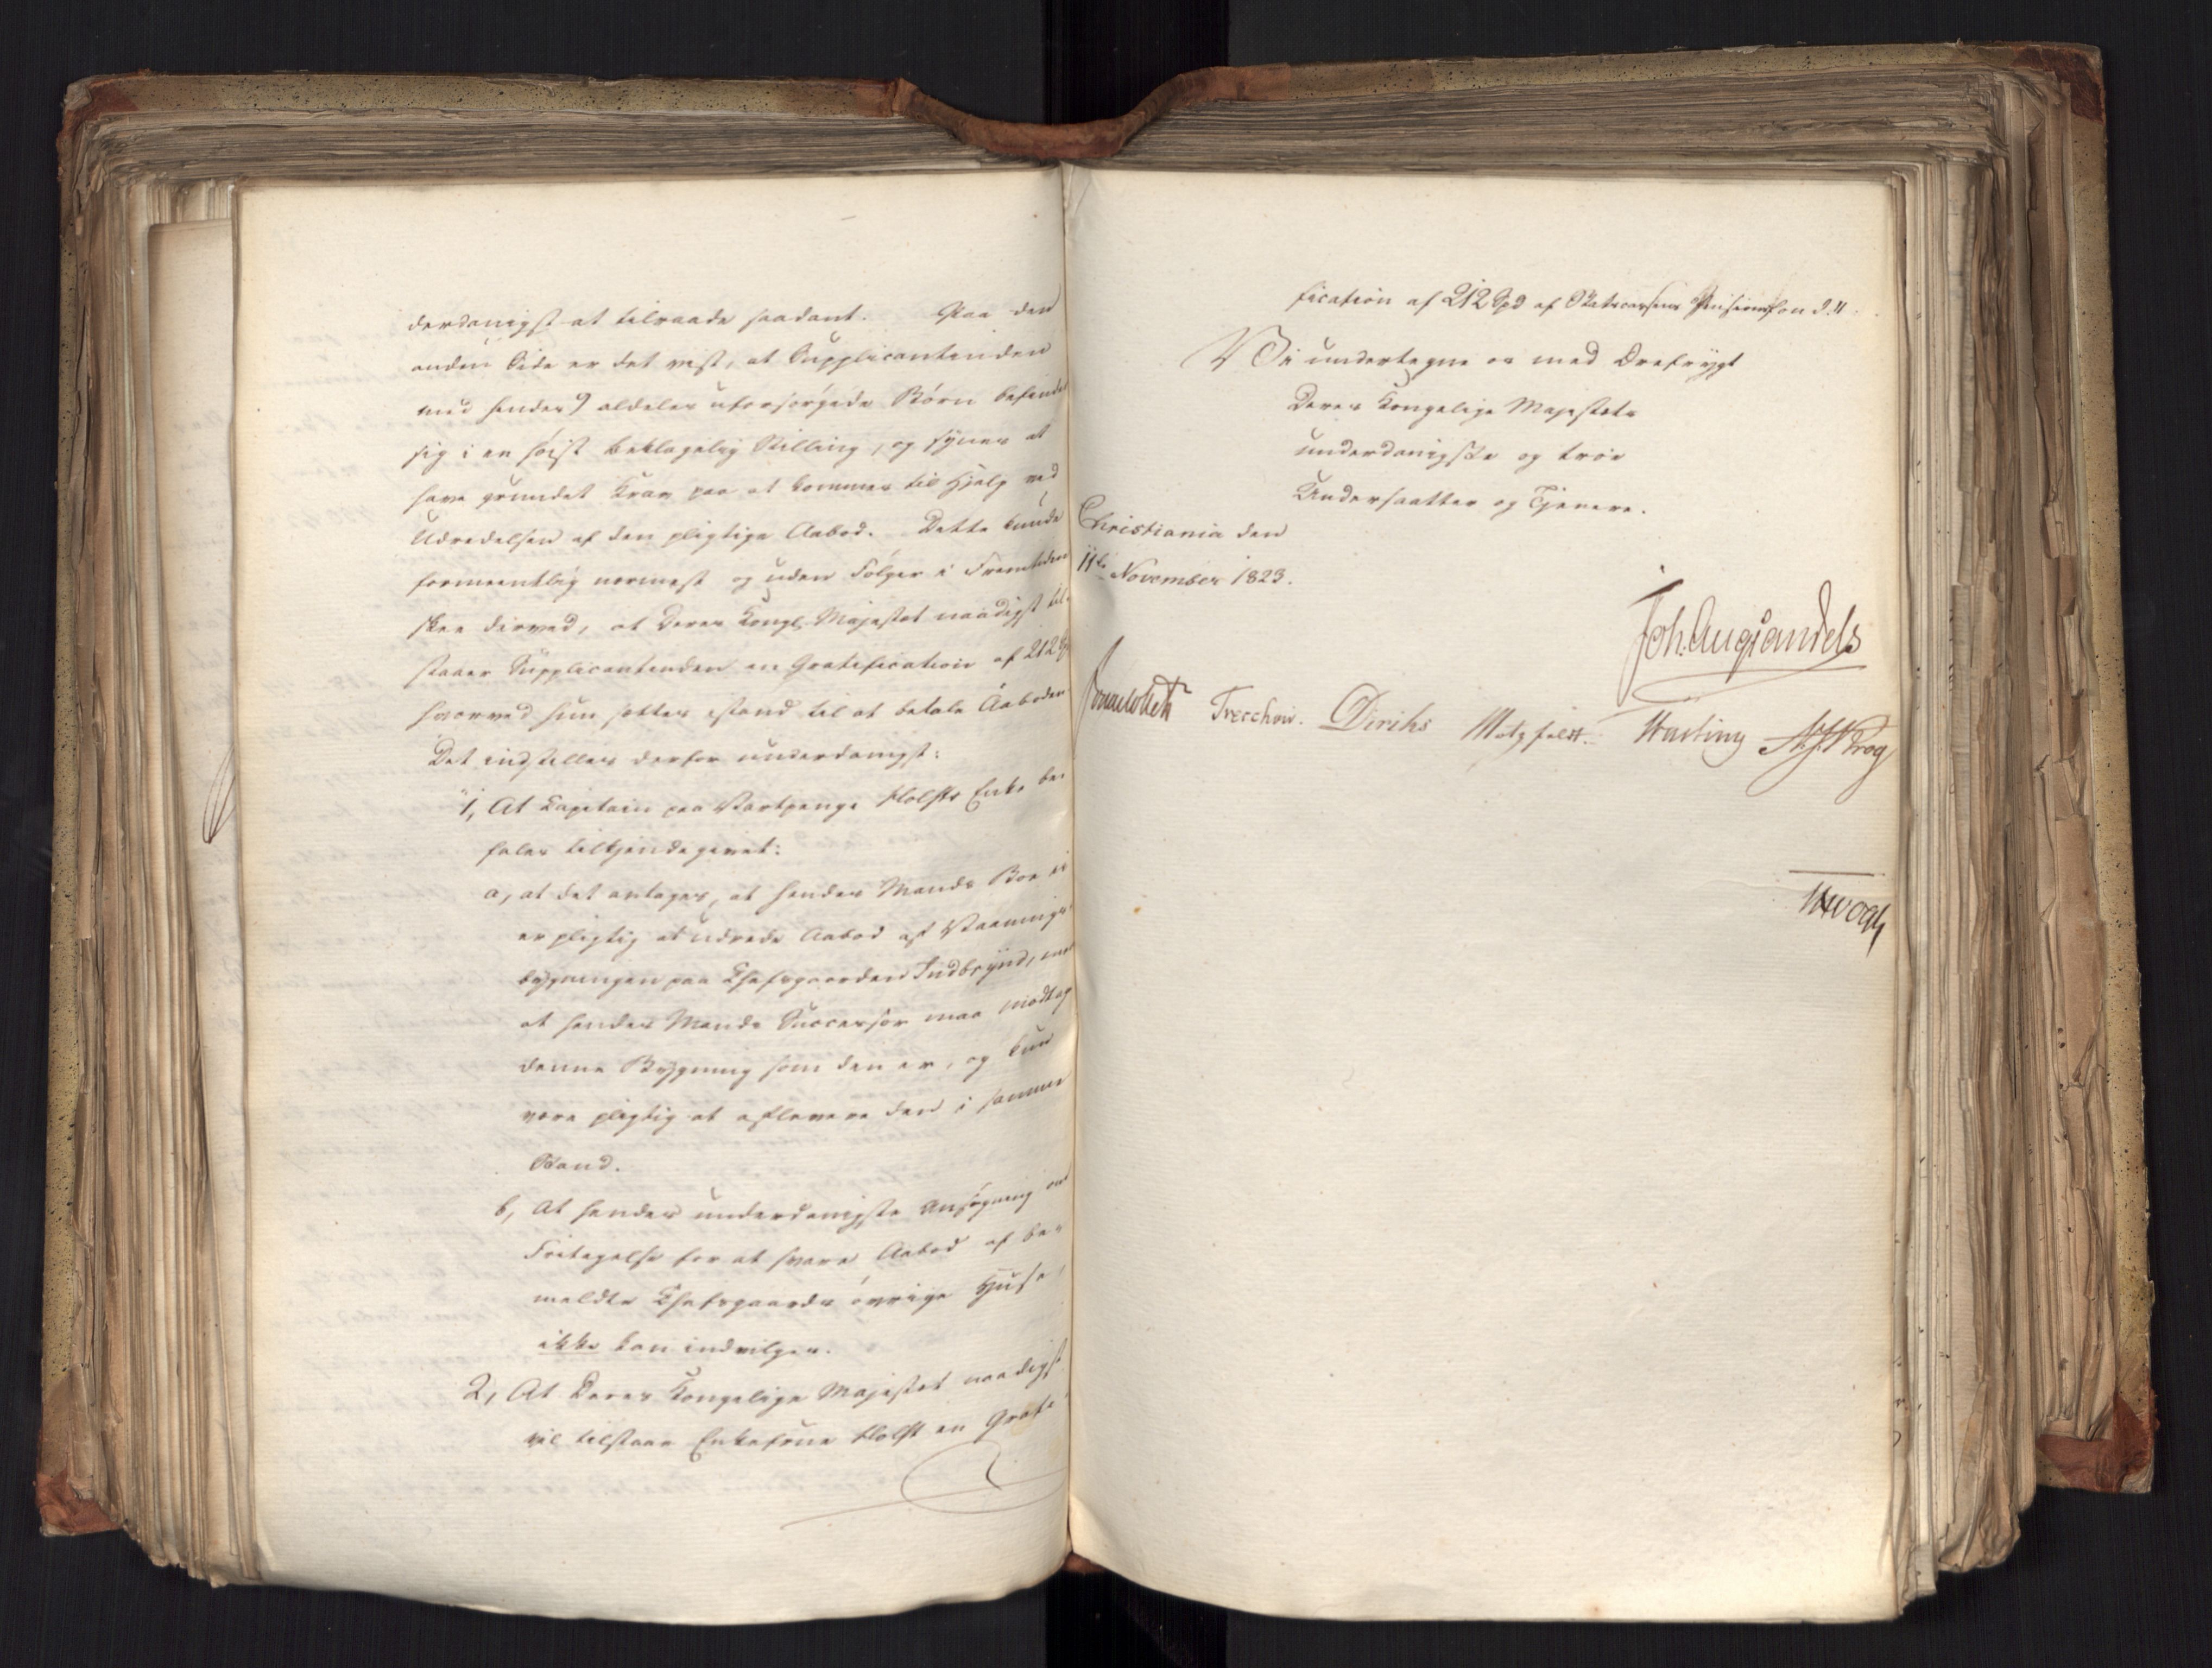 derdanigst at tilraade saadant. Paa den
anden Side er det vist, at Supplicantinden
med hendes 9 aldeles uforsørgede Børn befinder
sig i en høist beklagelig Stilling, og synes at
have grundet Krav paa at komme til Hjelp ved
Udredelsen af den pligtige Aabod. Dette kunde
formeentlig nærmest og uden Følger i Fremtiden
skee derved, at Deres Kongl. Majestet naadigst til-
staaer Supplicantinden en Gratification af 212 Spd
hvorved hun sættes istand til at betale Aaboden
Det indstilles derfor underdanigst:
"1, At Capitain paa Vartpenge Holsts Enke be-
fales tilkjendegivet:
a, at det antages, at hendes Mands Boe ei
er pligtig at udrede Aabod af Vaanings-
bygningen paa Chefsgaarden Indbryn, men
at hendes Mands Successor maa modtage
denne Bygning som den er, og kun
være pligtig at aflevere den i samme
Stand.
b, At hendes underdanigste Ansøgning om
Fritagelse for at svare Aabod af be-
meldte Chefsgaards øvrige Huse,
ikke kan indvilges.
2, At Deres Kongelige Majestet naadigst
vil tilstaae Enkefrue Holst en Grati-
fication af 212 Spd af Statscassens Pensionsfond."
Vi undertegne os med Ærefrygt
Deres Kongelige Majestets
underdanigste og troe
Undersaatter og Tjenere.
Christiania den
11te November 1823.
Joh. Aug. Sandels
Jonas Collett Treschow. Diriks Motzfeldt. Fasting Krog
Vogt